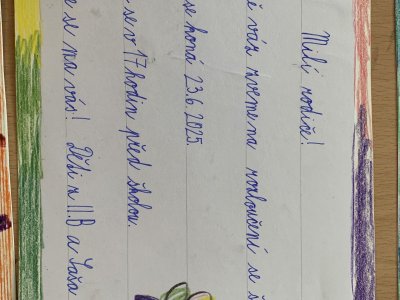 Milí rodiče!
vás zveme na rozloučení se š
se koná 23.6.2025.
se v 17 hodin před školou.
se na vás! Děti z II.B a Saša